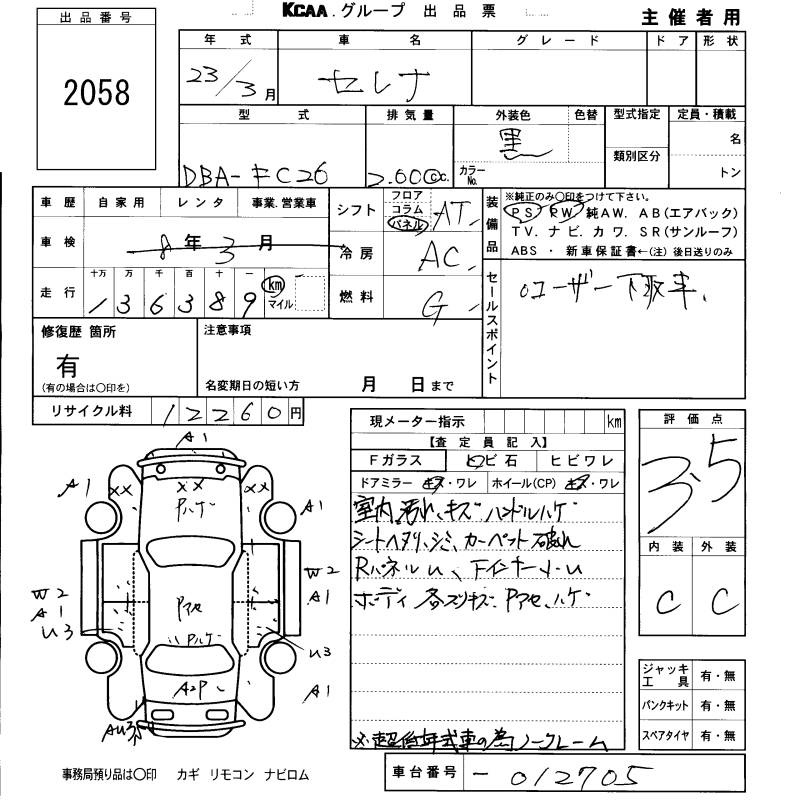 KCAA.グループ 出品票
主催者用
出品番号
2058
年式 車名 グレード ドア 形状
23/3月 セレナ
型式 排気量 外装色 色替 型式指定 定員・積載
黒 名
類別区分
DBA-FC26 2.00cc. カラーNo. トン
車歴 自家用 レンタ 事業.営業車
車検 8年3月
走行 十万 万 千 百 十 一 km マイル
136389
シフト フロア コラム パネル AT
冷房 AC
燃料 G
装備品
※純正のみ○印をつけて下さい。
PS PW 純AW. AB(エアバック)
TV. ナビ. カワ. SR(サンルーフ)
ABS ・ 新車保証書←(注) 後日送りのみ
セールスポイント
ユーザー下取車.
修復歴 箇所
有
(有の場合は○印を)
注意事項
名変期日の短い方 月 日まで
リサイクル料 12260円
現メーター指示 km
【査定員記入】
Fガラス トビ石 ヒビワレ
ドアミラー キズ・ワレ ホイール(CP) キズ・ワレ
室内汚れ、キズ ハンドルハゲ
シートヘタリ、シミ、カーペット破れ
RパネルU、FインナーU
ボディ各スリキズ Pアセ、ハゲ
※超低年式車の為ノークレーム
評価点
3.5
内装 外装
C C
ジャッキ工具 有・無
パンクキット 有・無
スペアタイヤ 有・無
A1
A1 XX XX Pハゲ A1
W2 A1 U3 Pアセ W2 A1
Pハゲ U3
A2P A1
AU3
事務局預り品は○印 カギ リモコン ナビロム
車台番号 -012705